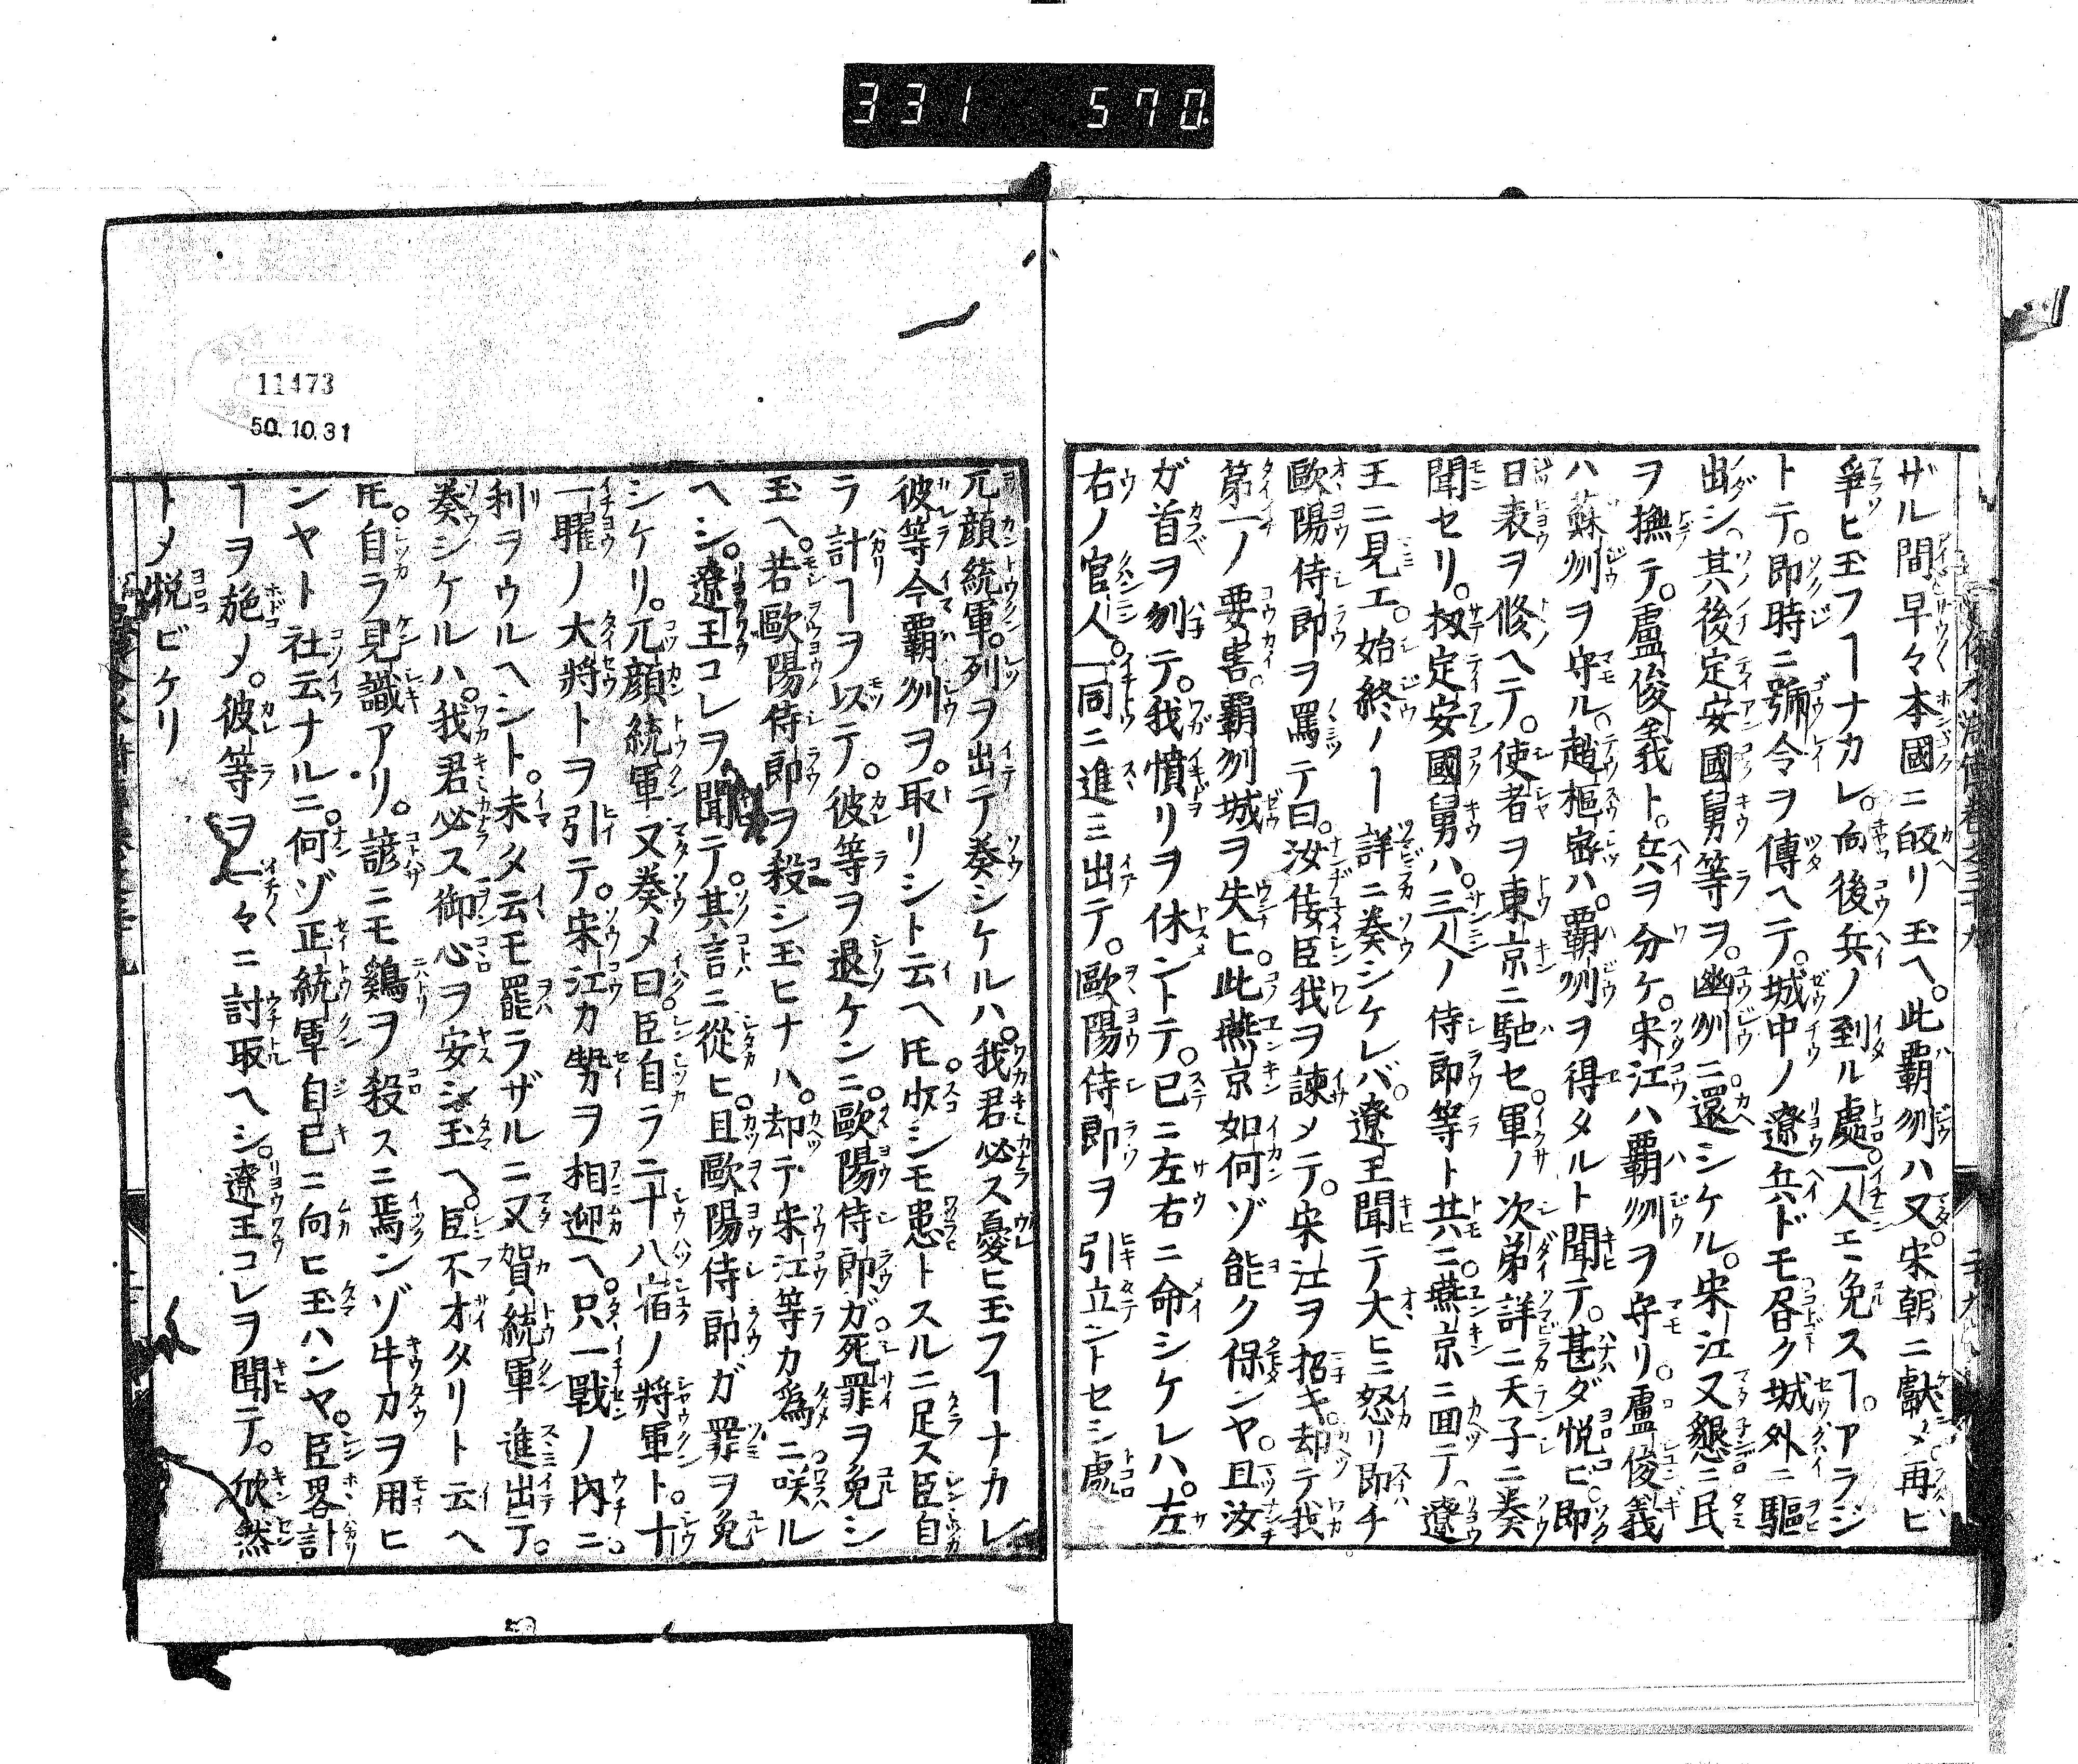 331 570.
ザル間早々本國ニ皈リ玉ヘ。此覇州ハ又。宋朝ニ獻メ再ヒ
爭ヒ玉フヿナカレ。向後兵ノ到ル處一人モ免スヿ。アラジ
トテ。即時ニ號令ヲ傳ヘテ。城中ノ遼兵ドモ咎ク城外ニ驅
出シ。其後定安國舅等ヲ。幽州ニ還シケル。宋江又懇ニ民
ヲ撫テ。盧俊義ト。兵ヲ分ケ。宋江ハ覇州ヲ守リ盧俊義
ハ蘇州ヲ守ル。趙樞密ハ。覇州ヲ得タルト聞テ。甚ダ悦ビ。即
日表ヲ修ヘテ。使者ヲ東京ニ馳セ。軍ノ次弟詳ニ天子ニ奏
聞セリ。扨定安國舅ハ。三人ノ侍郎等ト共ニ。燕京ニ回テ。遼
王ニ見エ。始終ノヿ詳ニ奏シケレバ。遼王聞テ大ヒニ怒リ即チ
歐陽侍郎ヲ罵テ曰。汝侫臣我ヲ諫メテ。宋江ヲ招キ。却テ我
第一ノ要害。覇州城ヲ失ヒ。此燕京如何ゾ能ク保ンヤ。且汝
ガ首ヲ刎テ。我憤リヲ休ントテ。已ニ左右ニ命シケレハ。左
右ノ官人。一同ニ進ミ出テ。歐陽侍郎ヲ引立ントセシ處
11473
50.10.31
兀顔統軍。列ヲ出テ奏シケルハ。我君必ス憂ヒ玉フヿナカレ
彼等今覇州ヲ。取リシト云ヘ𪜈。少シモ患トスルニ足ス臣自
ラ計ヿヲ以テ。彼等ヲ退ケンニ。歐陽侍郎ガ死罪ヲ免シ
玉ヘ。若歐陽侍郎ヲ殺シ玉ヒナハ。却テ宋江等カ爲ニ咲ル
ヘシ。遼王コレヲ聞テ。其言ニ從ヒ。且歐陽侍郎ガ罪ヲ免
シケリ。兀顔統軍又奏メ曰。臣自ラ二十八宿ノ將軍ト。十
一曜ノ大將トヲ引テ。宋江カ勢ヲ相迎ヘ。只一戰ノ内ニ。
利ヲウルヘシト。未タ云モ罷ラザルニ又賀統軍進出テ。
奏シケルハ。我君必ス御心ヲ安シ玉ヘ。臣不才タリト云ヘ
𪜈。自ラ見識アリ。諺ニモ鷄ヲ殺スニ焉ンゾ牛刀ヲ用ヒ
ンヤト社云ナルニ。何ゾ正統軍自己ニ向ヒ玉ハンヤ。臣畧計
ヿヲ施メ。彼等ヲ一々ニ討取ヘシ。遼王コレヲ聞テ。欣然
トメ悦ビケリ